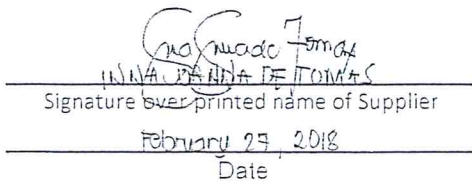 INNA JOANNA DE TOMAS
Signature over printed name of Supplier
February 27, 2018
Date